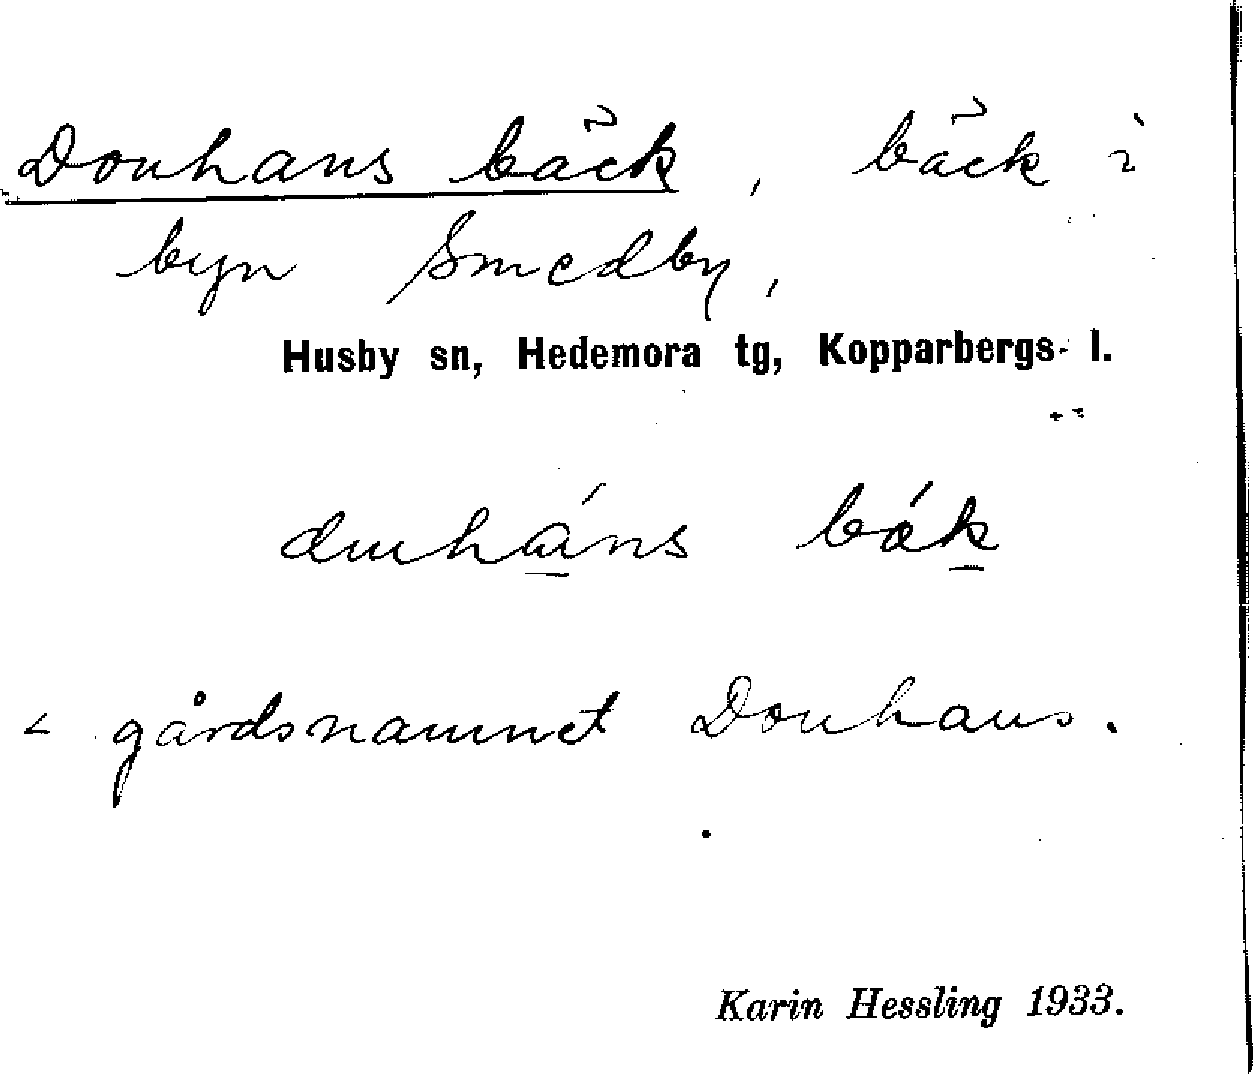 Donhans bäck, bäck i
byn Smedby,
Husby sn, Hedemora tg, Kopparbergs- l.
bäk
< gårdsnamnet Donhans.
Karin Hessling 1933.